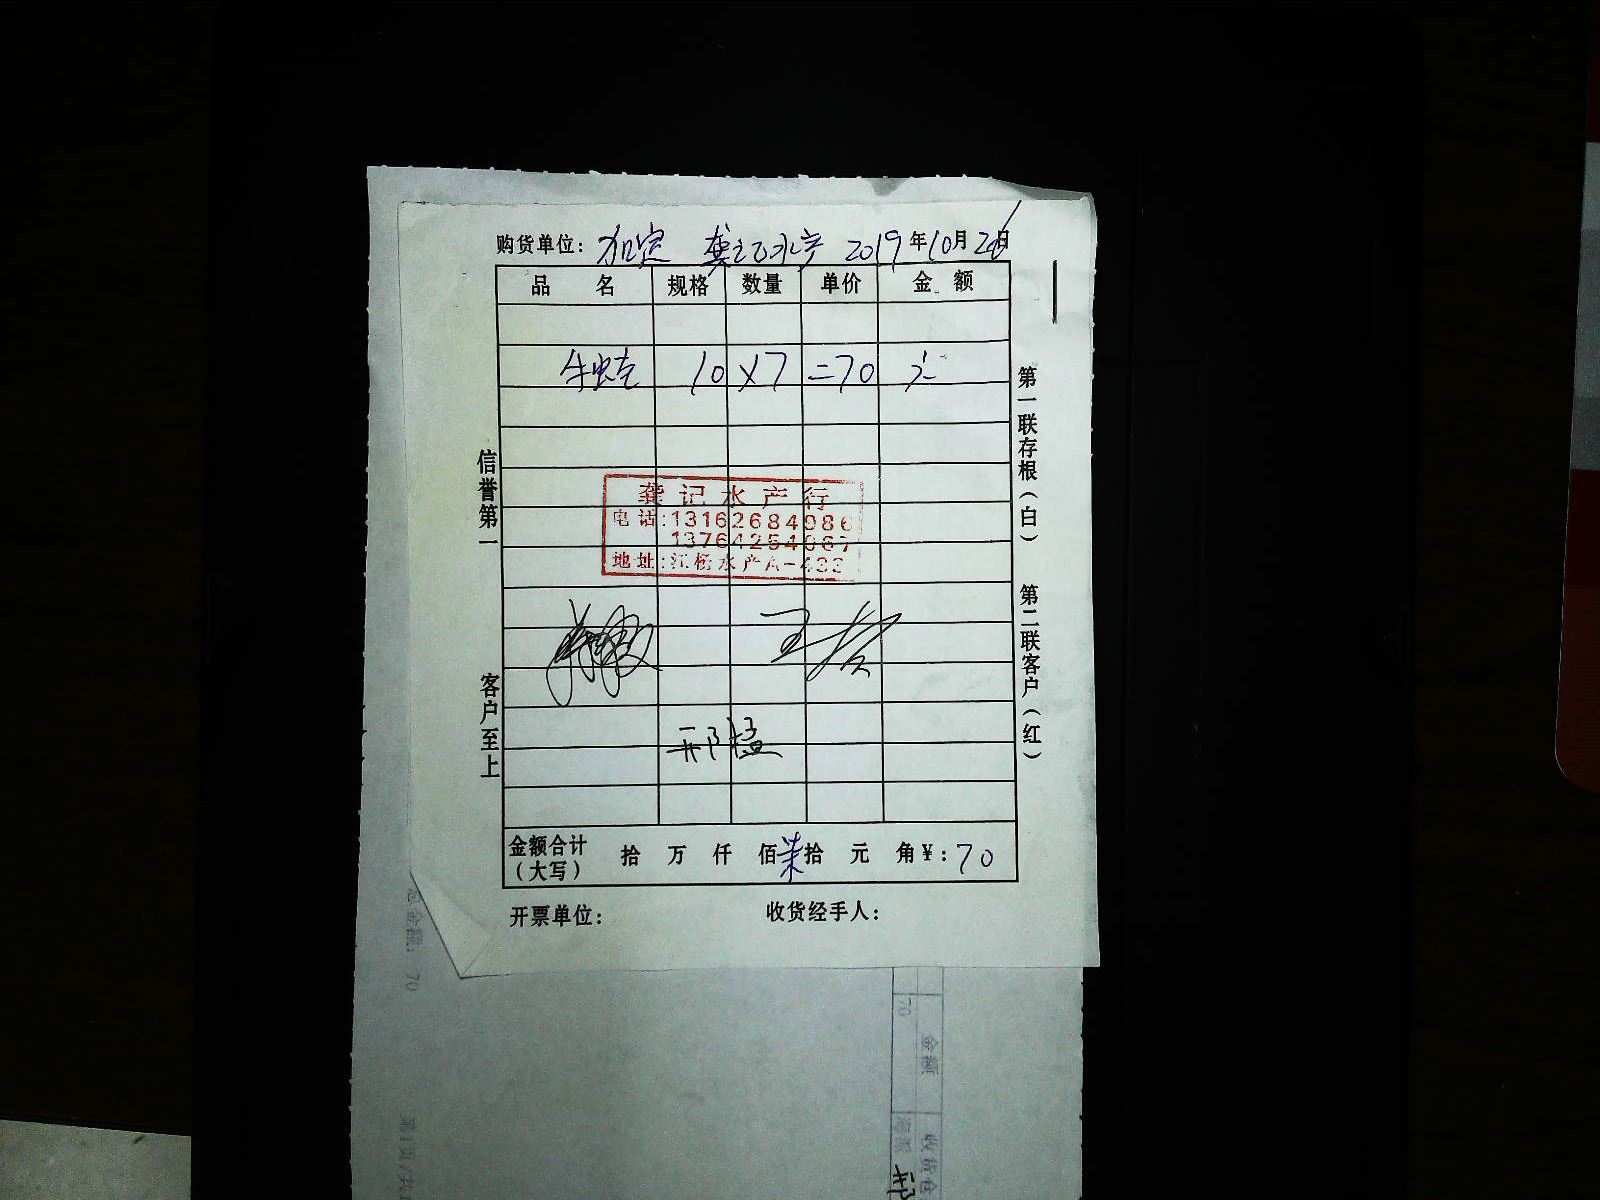 购货单位: 加定 龚记水产 2019年10月26日
品 名 规格 数量 单价 金 额
牛蛙 10 x7 =70 元
龚记水产行
电话:13162684986
13764254067
地址:江杨水产A-433
王
邢猛
金额合计(大写) 拾 万 仟 佰 柒拾 元 角¥: 70
开票单位: 收货经手人:
信誉第一
客户至上
第一联存根(白)
第二联客户(红)
总金额: 70
金额
70